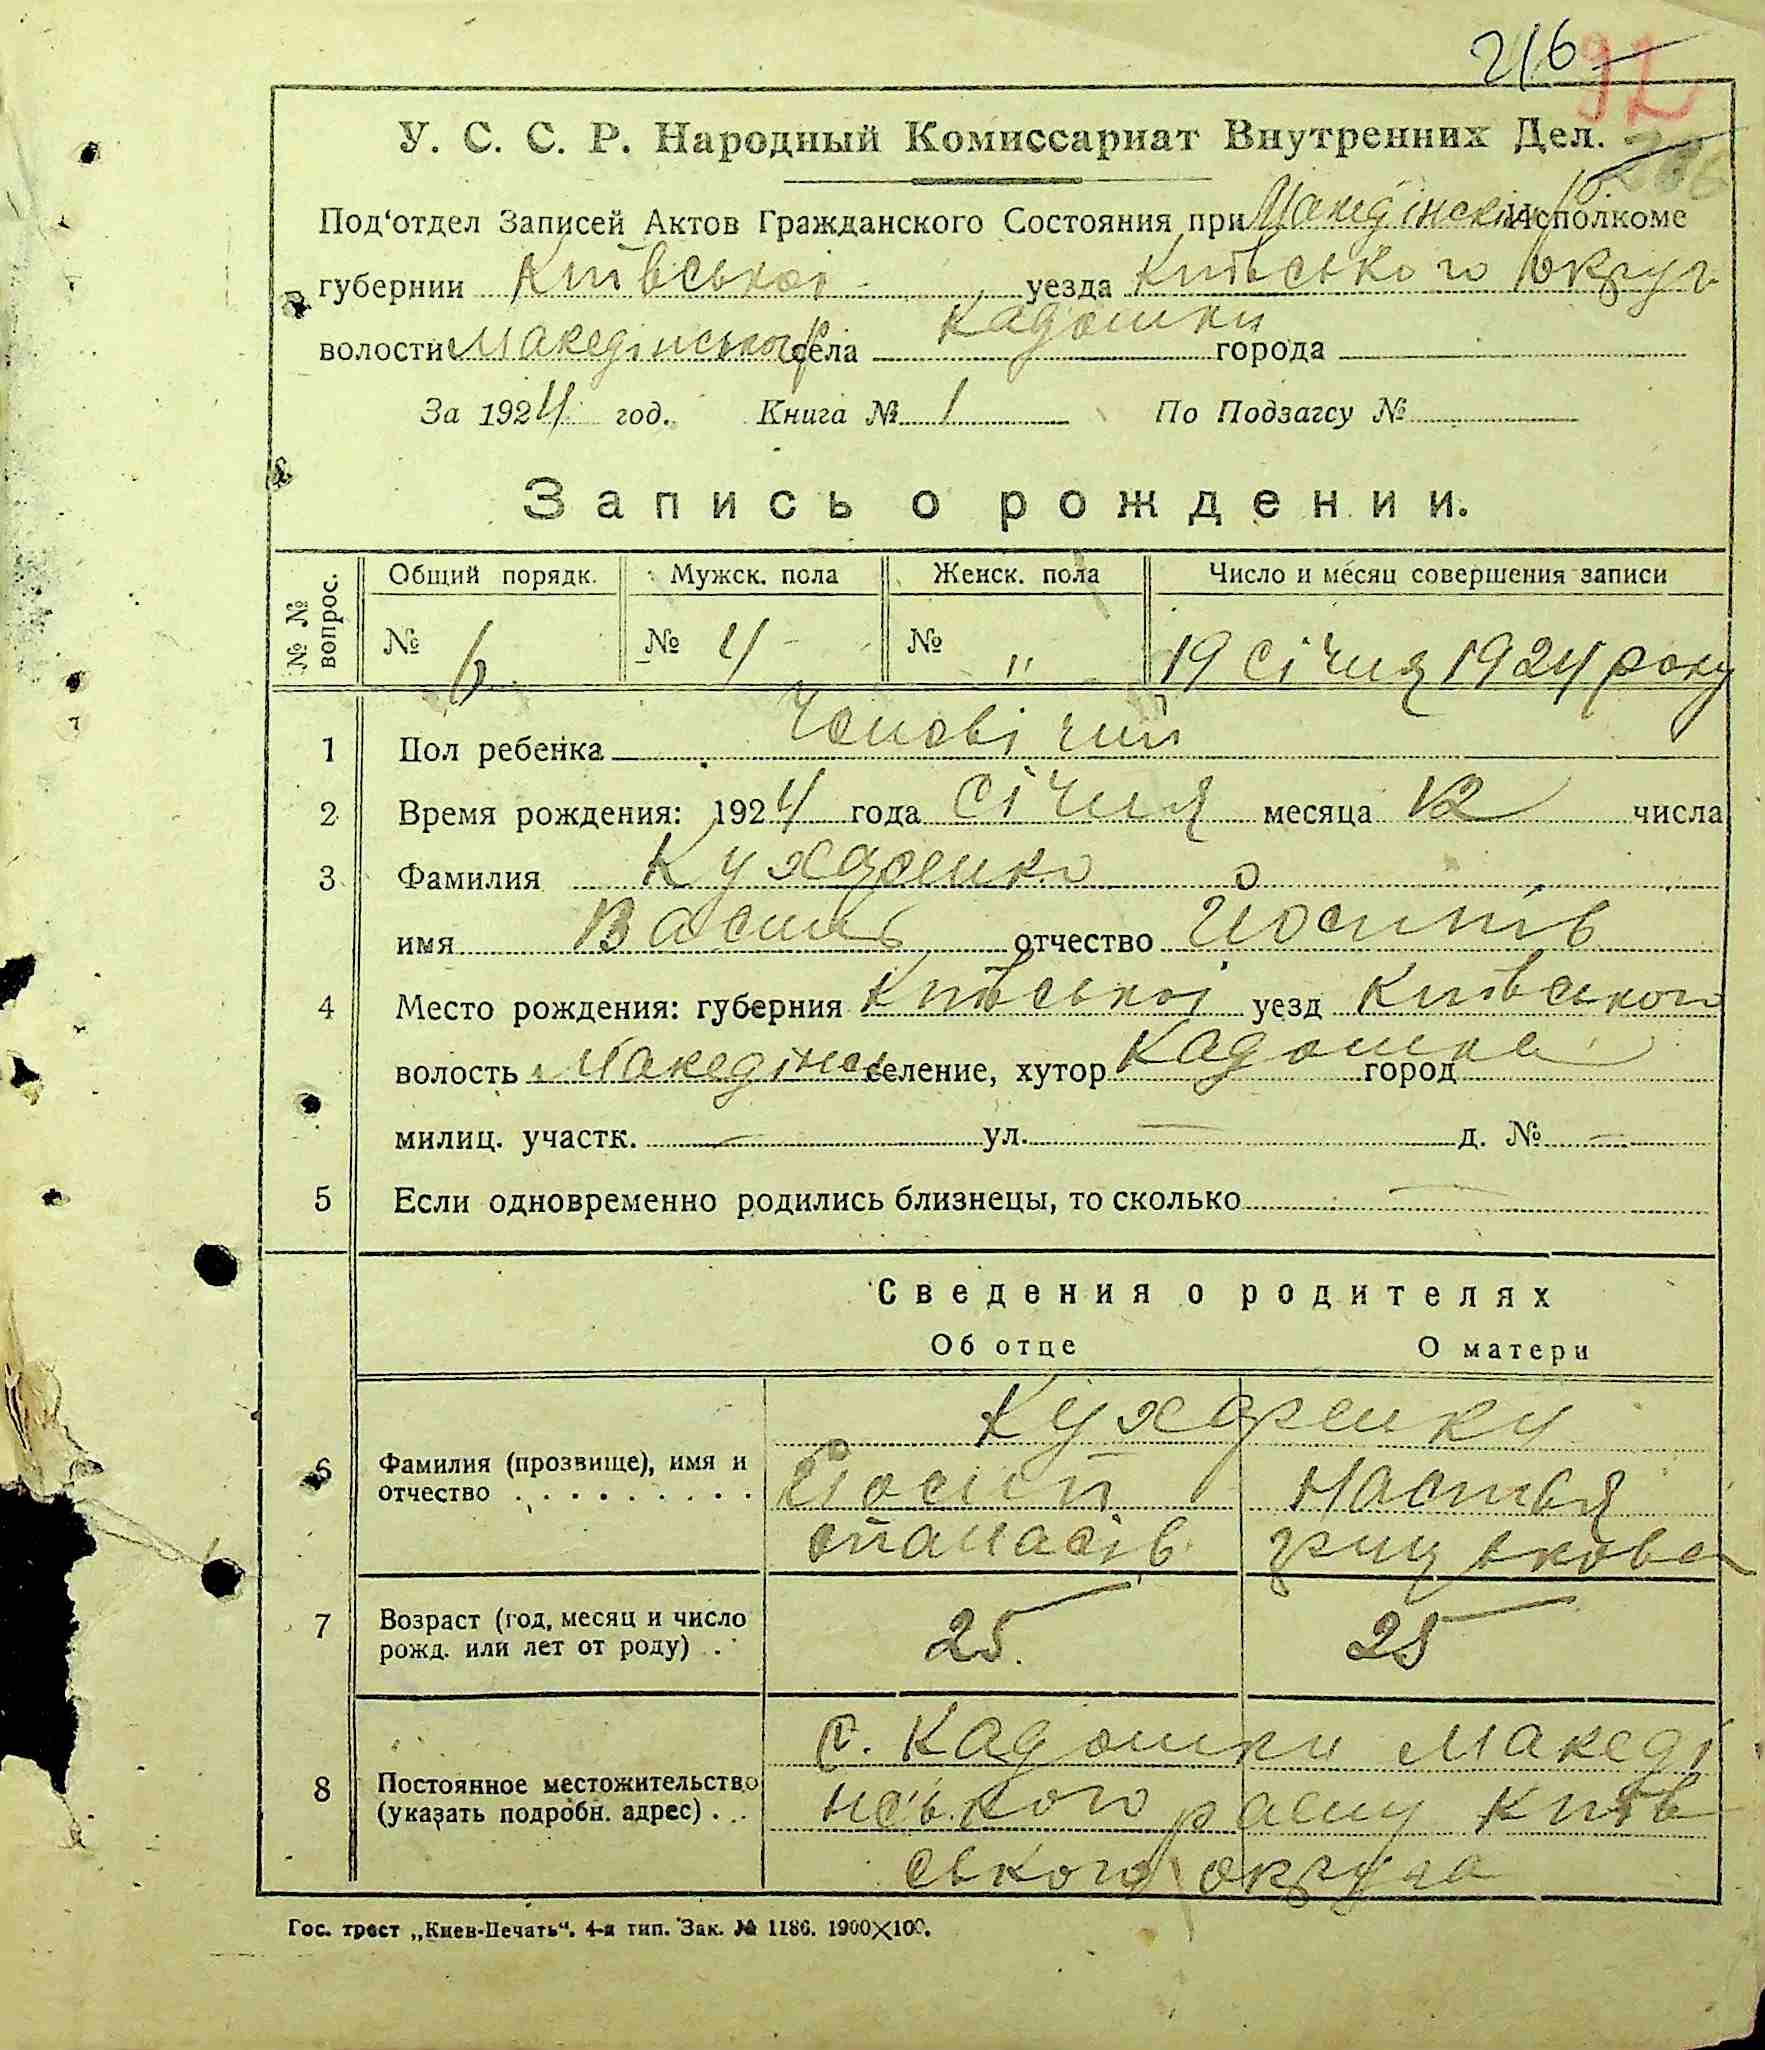 216
92
У. С. С. Р. Народный Комиссариат Внутренних Дел.
Под‘отдел Записей Актов Гражданского Состояния при Исполкоме
губернии Київської уезда Київського округ
волости Македінського села Кадошки города
За 1924 год. Книга № 1 По Подзагсу №
Запись о рождении.
№ № вопрос. Общий порядк. Мужск. пола Женск. пола Число и месяц совершения записи
№ 6 № 4 № " 19 січня 1924 року
1 Пол ребенка Чоловічий
2 Время рождения: 1924 года Січня месяца 12 числа
3 Фамилия Кухаренко
имя Василь отчество Йосипів
4 Место рождения: губерния Київської уезд Київського
волость Македінсь селение, хутор Кадошки город
милиц. участк. — ул. — д. № —
5 Если одновременно родились близнецы, то сколько —
Сведения о родителях
Об отце О матери
Кухаренки
6 Фамилия (прозвище), имя и Йосип Настья
отчество . . . . . . . . . Опанасів Грицькова
7 Возраст (год, месяц и число 25 25
рожд. или лет от роду) . .
с. Кадошки Македі
8 Постоянное местожительство нського раену Київ
(указать подробн. адрес) . . ського округа
Гос. трест „Киев-Печать“. 4-я тип. Зак. № 1186. 1900×100.